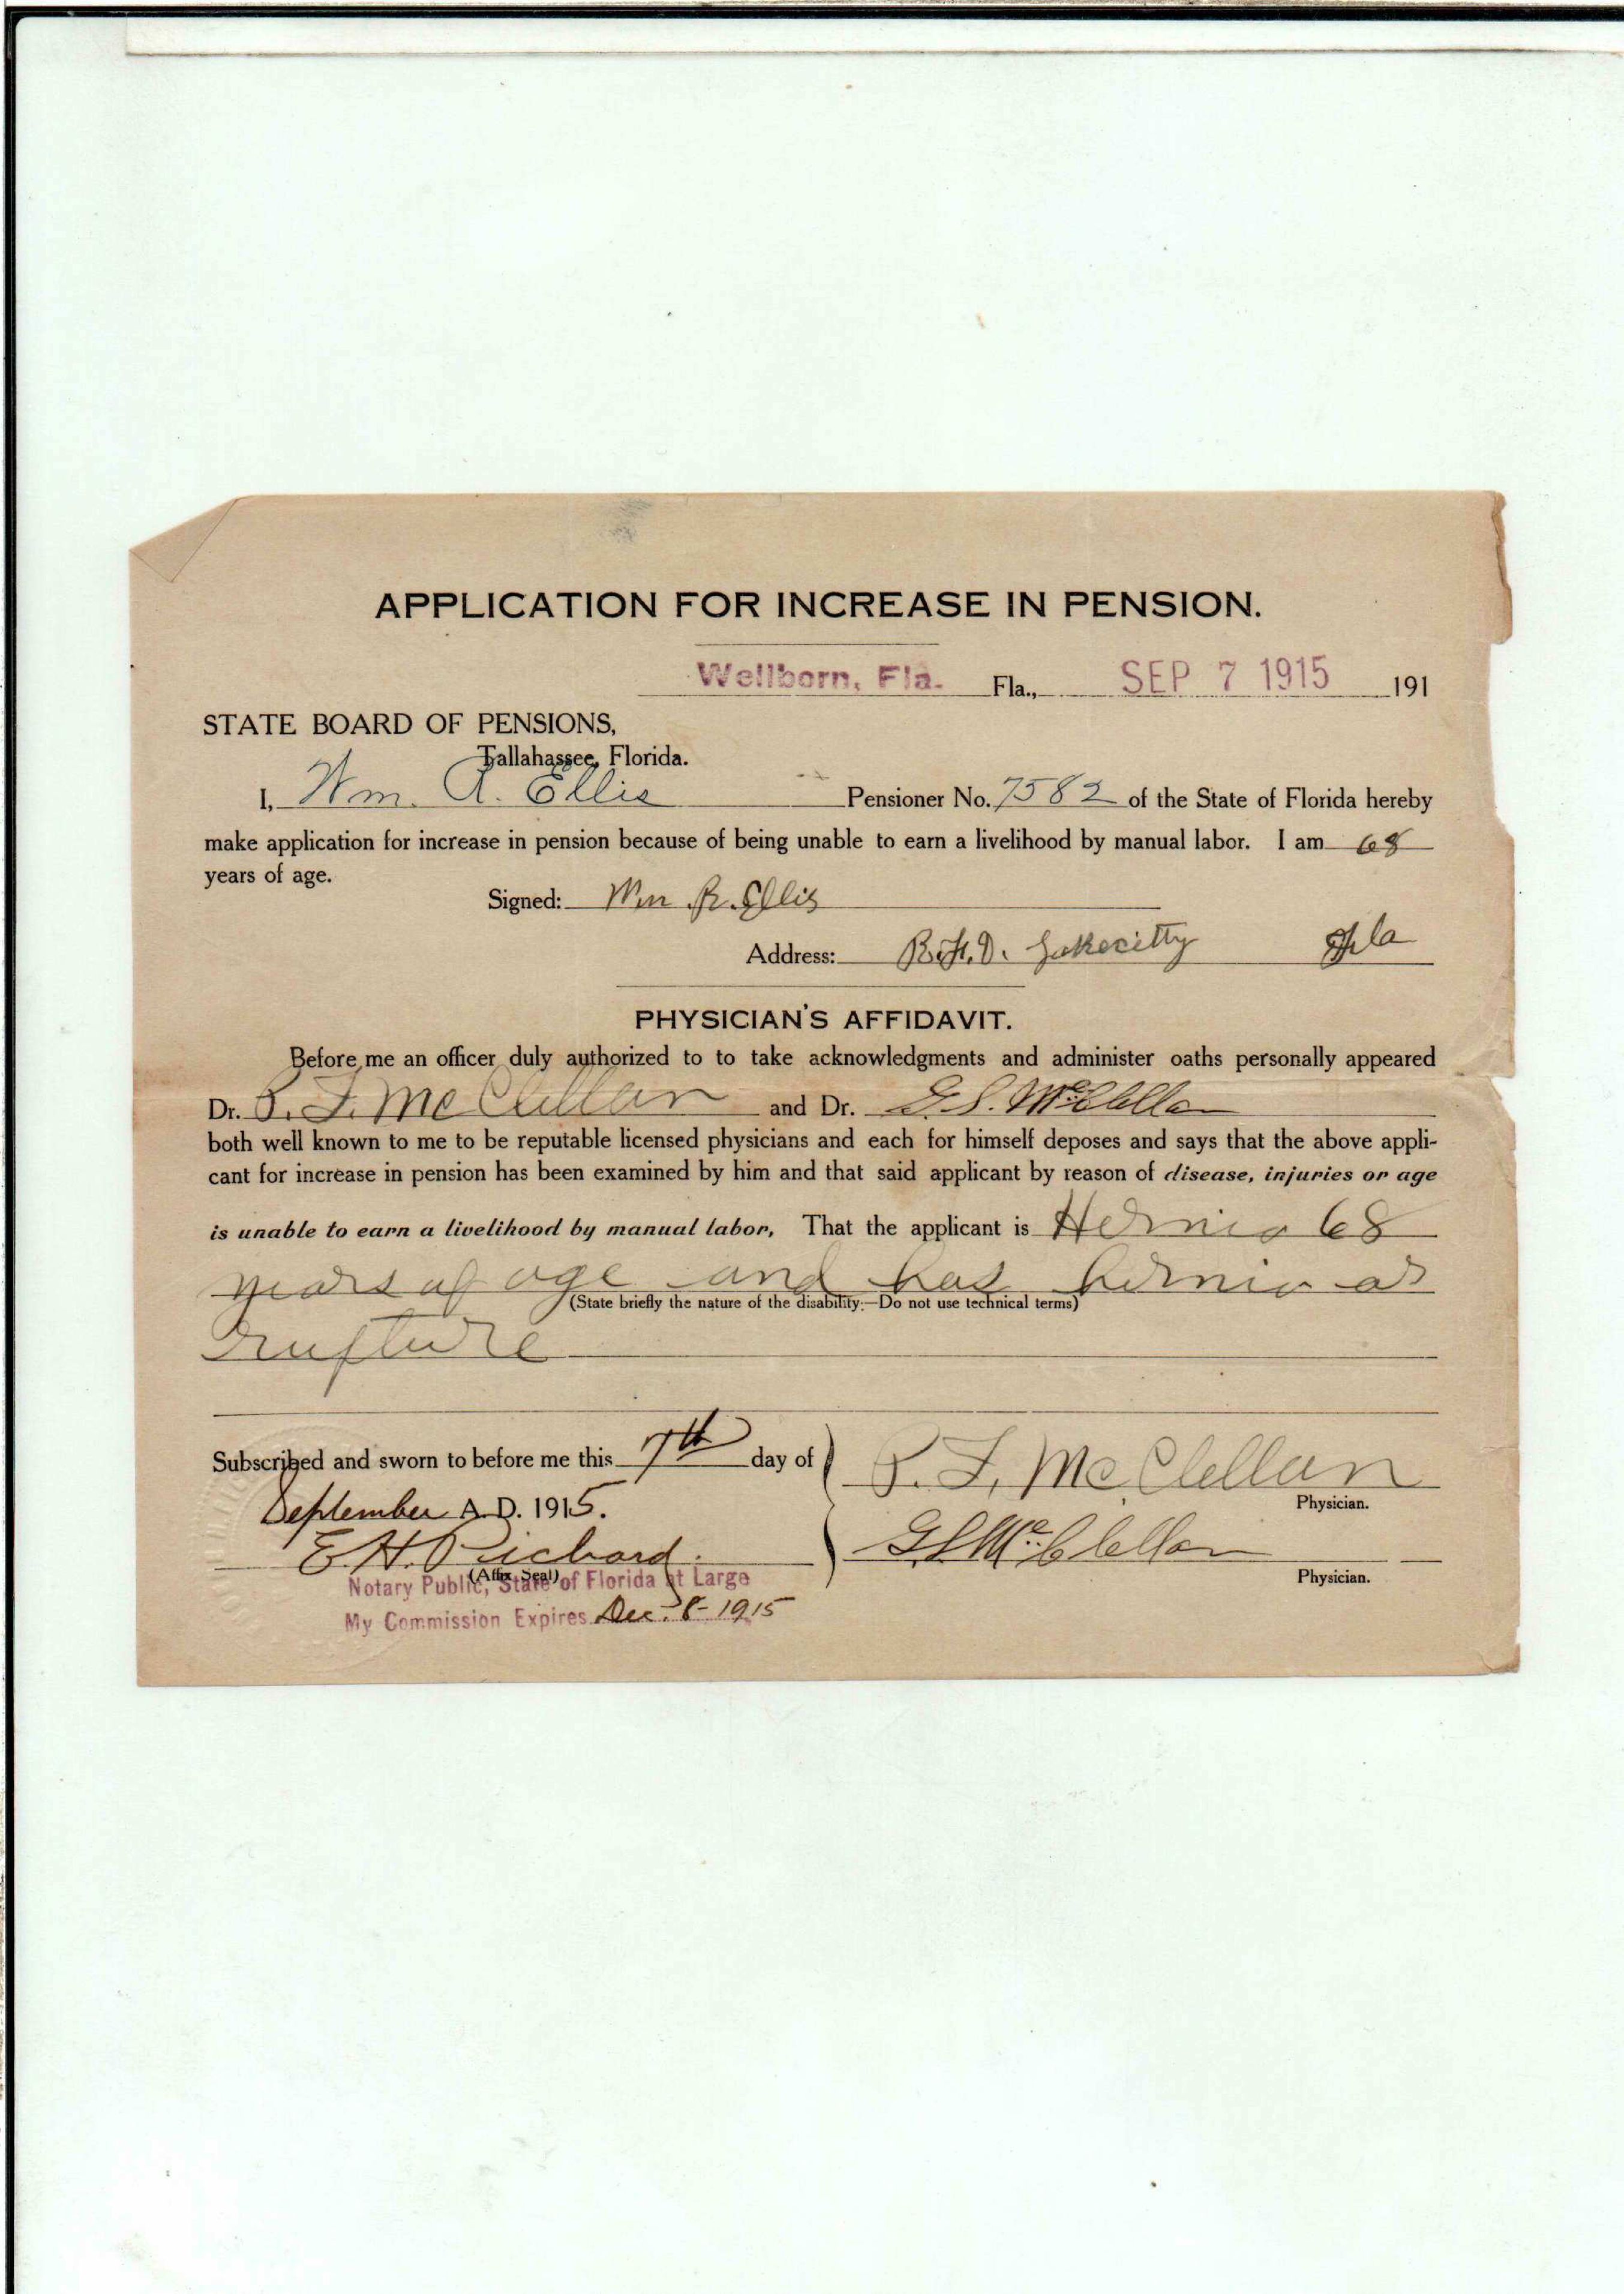 APPLICATION FOR INCREASE IN PENSION.
Wellborn, Fla. Fla., SEP 7 1915 191
STATE BOARD OF PENSIONS,
Tallahassee, Florida.
I, Wm. R. Ellis Pensioner No. 7582 of the State of Florida hereby
make application for increase in pension because of being unable to earn a livelihood by manual labor. I am 68
years of age.
Signed: Wm R. Ellis
Address: R.F.D. Lakecitty Fla
PHYSICIAN'S AFFIDAVIT.
Before me an officer duly authorized to to take acknowledgments and administer oaths personally appeared
Dr. McClellan and Dr. McClellan
both well known to me to be reputable licensed physicians and each for himself deposes and says that the above appli-
cant for increase in pension has been examined by him and that said applicant by reason of disease, injuries or age
is unable to earn a livelihood by manual labor, That the applicant is Hernia 68
years of age and has hernia or
(State briefly the nature of the disability:—Do not use technical terms)
rupture
Subscribed and sworn to before me this 7th day of
September A. D. 1915.
McClellan
Physician.
E. H. Richard.
McClellan
(Affix Seal)
Physician.
Notary Public, State of Florida at Large
My Commission Expires Dec. 8- 1915